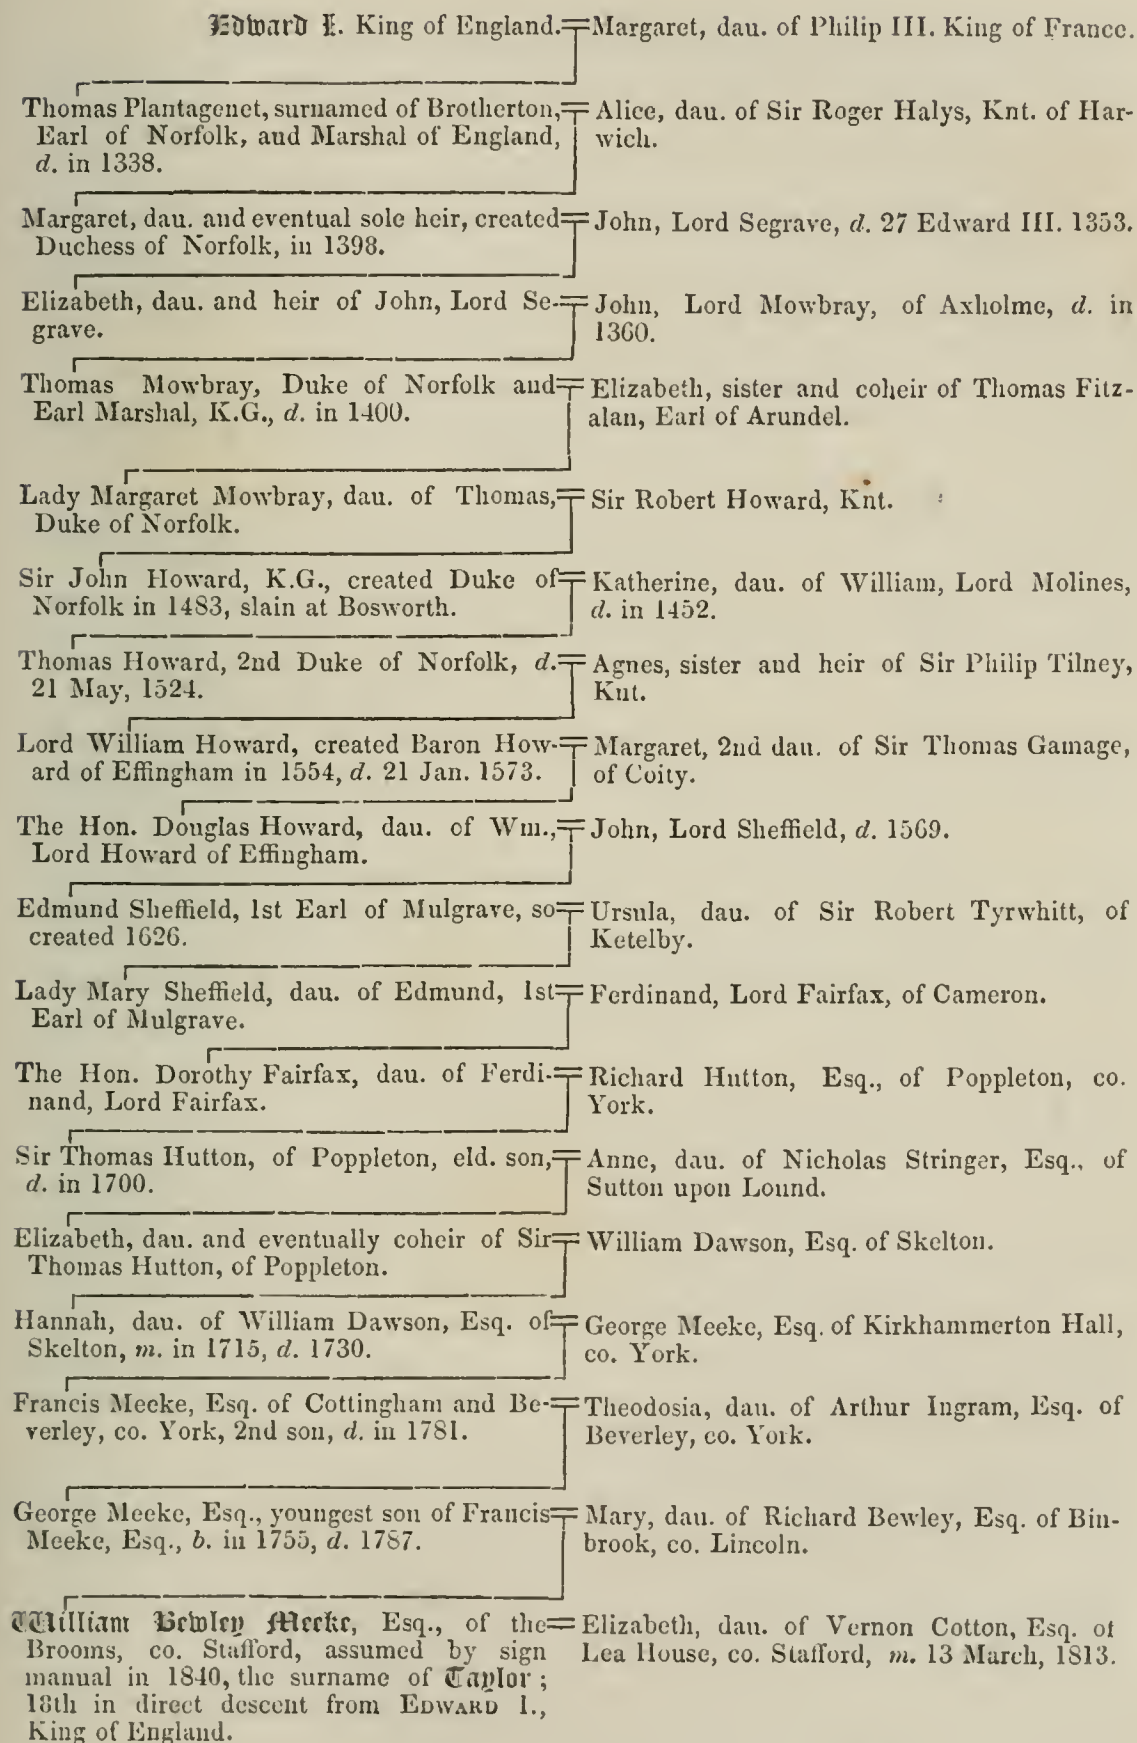 Edward I. King of England.=Margaret, dau. of Philip III. King of France.
Thomas Plantagenet, surnamed of Brotherton,
Earl of Norfolk, and Marshal of England,
d. in 1338.
Alice, dau. of Sir Roger Halys, Knt. of Har-
wich.
Margaret, dau. and eventual sole heir, created
Duchess of Norfolk, in 1398.
John, Lord Segrave, d. 27 Edward III. 1353.
Elizabeth, dau. and heir of John, Lord Se-
grave.
John, Lord Mowbray, of Axholme, d. in
1360.
Thomas Mowbray, Duke of Norfolk and
Earl Marshal, K.G., d. in 1400.
Elizabeth, sister and coheir of Thomas Fitz-
alan, Earl of Arundel.
Lady Margaret Mowbray, dau. of Thomas,
Duke of Norfolk.
Sir Robert Howard, Knt.
Sir John Howard, K.G., created Duke of
Norfolk in 1483, slain at Bosworth.
Katherine, dau. of William, Lord Molines,
d. in 1452.
Thomas Howard, 2nd Duke of Norfolk, d.
21 May, 1524.
Agnes, sister and heir of Sir Philip Tilney,
Knt.
Lord William Howard, created Baron How-
ard of Effingham in 1554, d. 21 Jan. 1573.
Margaret, 2nd dau. of Sir Thomas Gamage,
of Coity.
The Hon. Douglas Howard, dau. of Wm.,
Lord Howard of Effingham.
John, Lord Sheffield, d. 1569.
Edmund Sheffield, 1st Earl of Mulgrave, so
created 1626.
Ursula, dau. of Sir Robert Tyrwhitt, of
Ketelby.
Lady Mary Sheffield, dau. of Edmund, 1st
Earl of Mulgrave.
Ferdinand, Lord Fairfax, of Cameron.
The Hon. Dorothy Fairfax, dau. of Ferdi-
nand, Lord Fairfax.
Richard Hutton, Esq., of Poppleton, co.
York.
Sir Thomas Hutton, of Poppleton, eld. son,
d. in 1700.
Anne, dau. of Nicholas Stringer, Esq., of
Sutton upon Lound.
Elizabeth, dau. and eventually coheir of Sir
Thomas Hutton, of Poppleton.
William Dawson, Esq. of Skelton.
Hannah, dau. of William Dawson, Esq. of
Skelton, m. in 1715, d. 1730.
George Meeke, Esq. of Kirkhammerton Hall,
co. York.
Francis Meeke, Esq. of Cottingham and Be-
verley, co. York, 2nd son, d. in 1781.
Theodosia, dau. of Arthur Ingram, Esq. of
Beverley, co. York.
George Meeke, Esq., youngest son of Francis
Meeke, Esq., b. in 1755, d. 1787.
Mary, dau. of Richard Bewley, Esq. of Bin-
brook, co. Lincoln.
William Bewley Meeke, Esq., of the
Brooms, co. Stafford, assumed by sign
manual in 1840, the surname of Taylor;
18th in direct descent from EDWARD I.,
King of England.
Elizabeth, dau. of Vernon Cotton, Esq. of
Lea House, co. Stafford, m. 13 March, 1813.